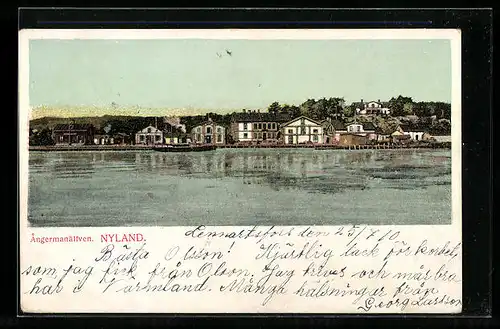 Ångermanälfven. NYLAND.
Lennartsfors den 25/7 10
Bästa Olsson! Hjärtlig tack för kortet,
som jag fick från Olson. Jag och mår bra
har i Värmland. Många hälsningar från
Georg Larsson